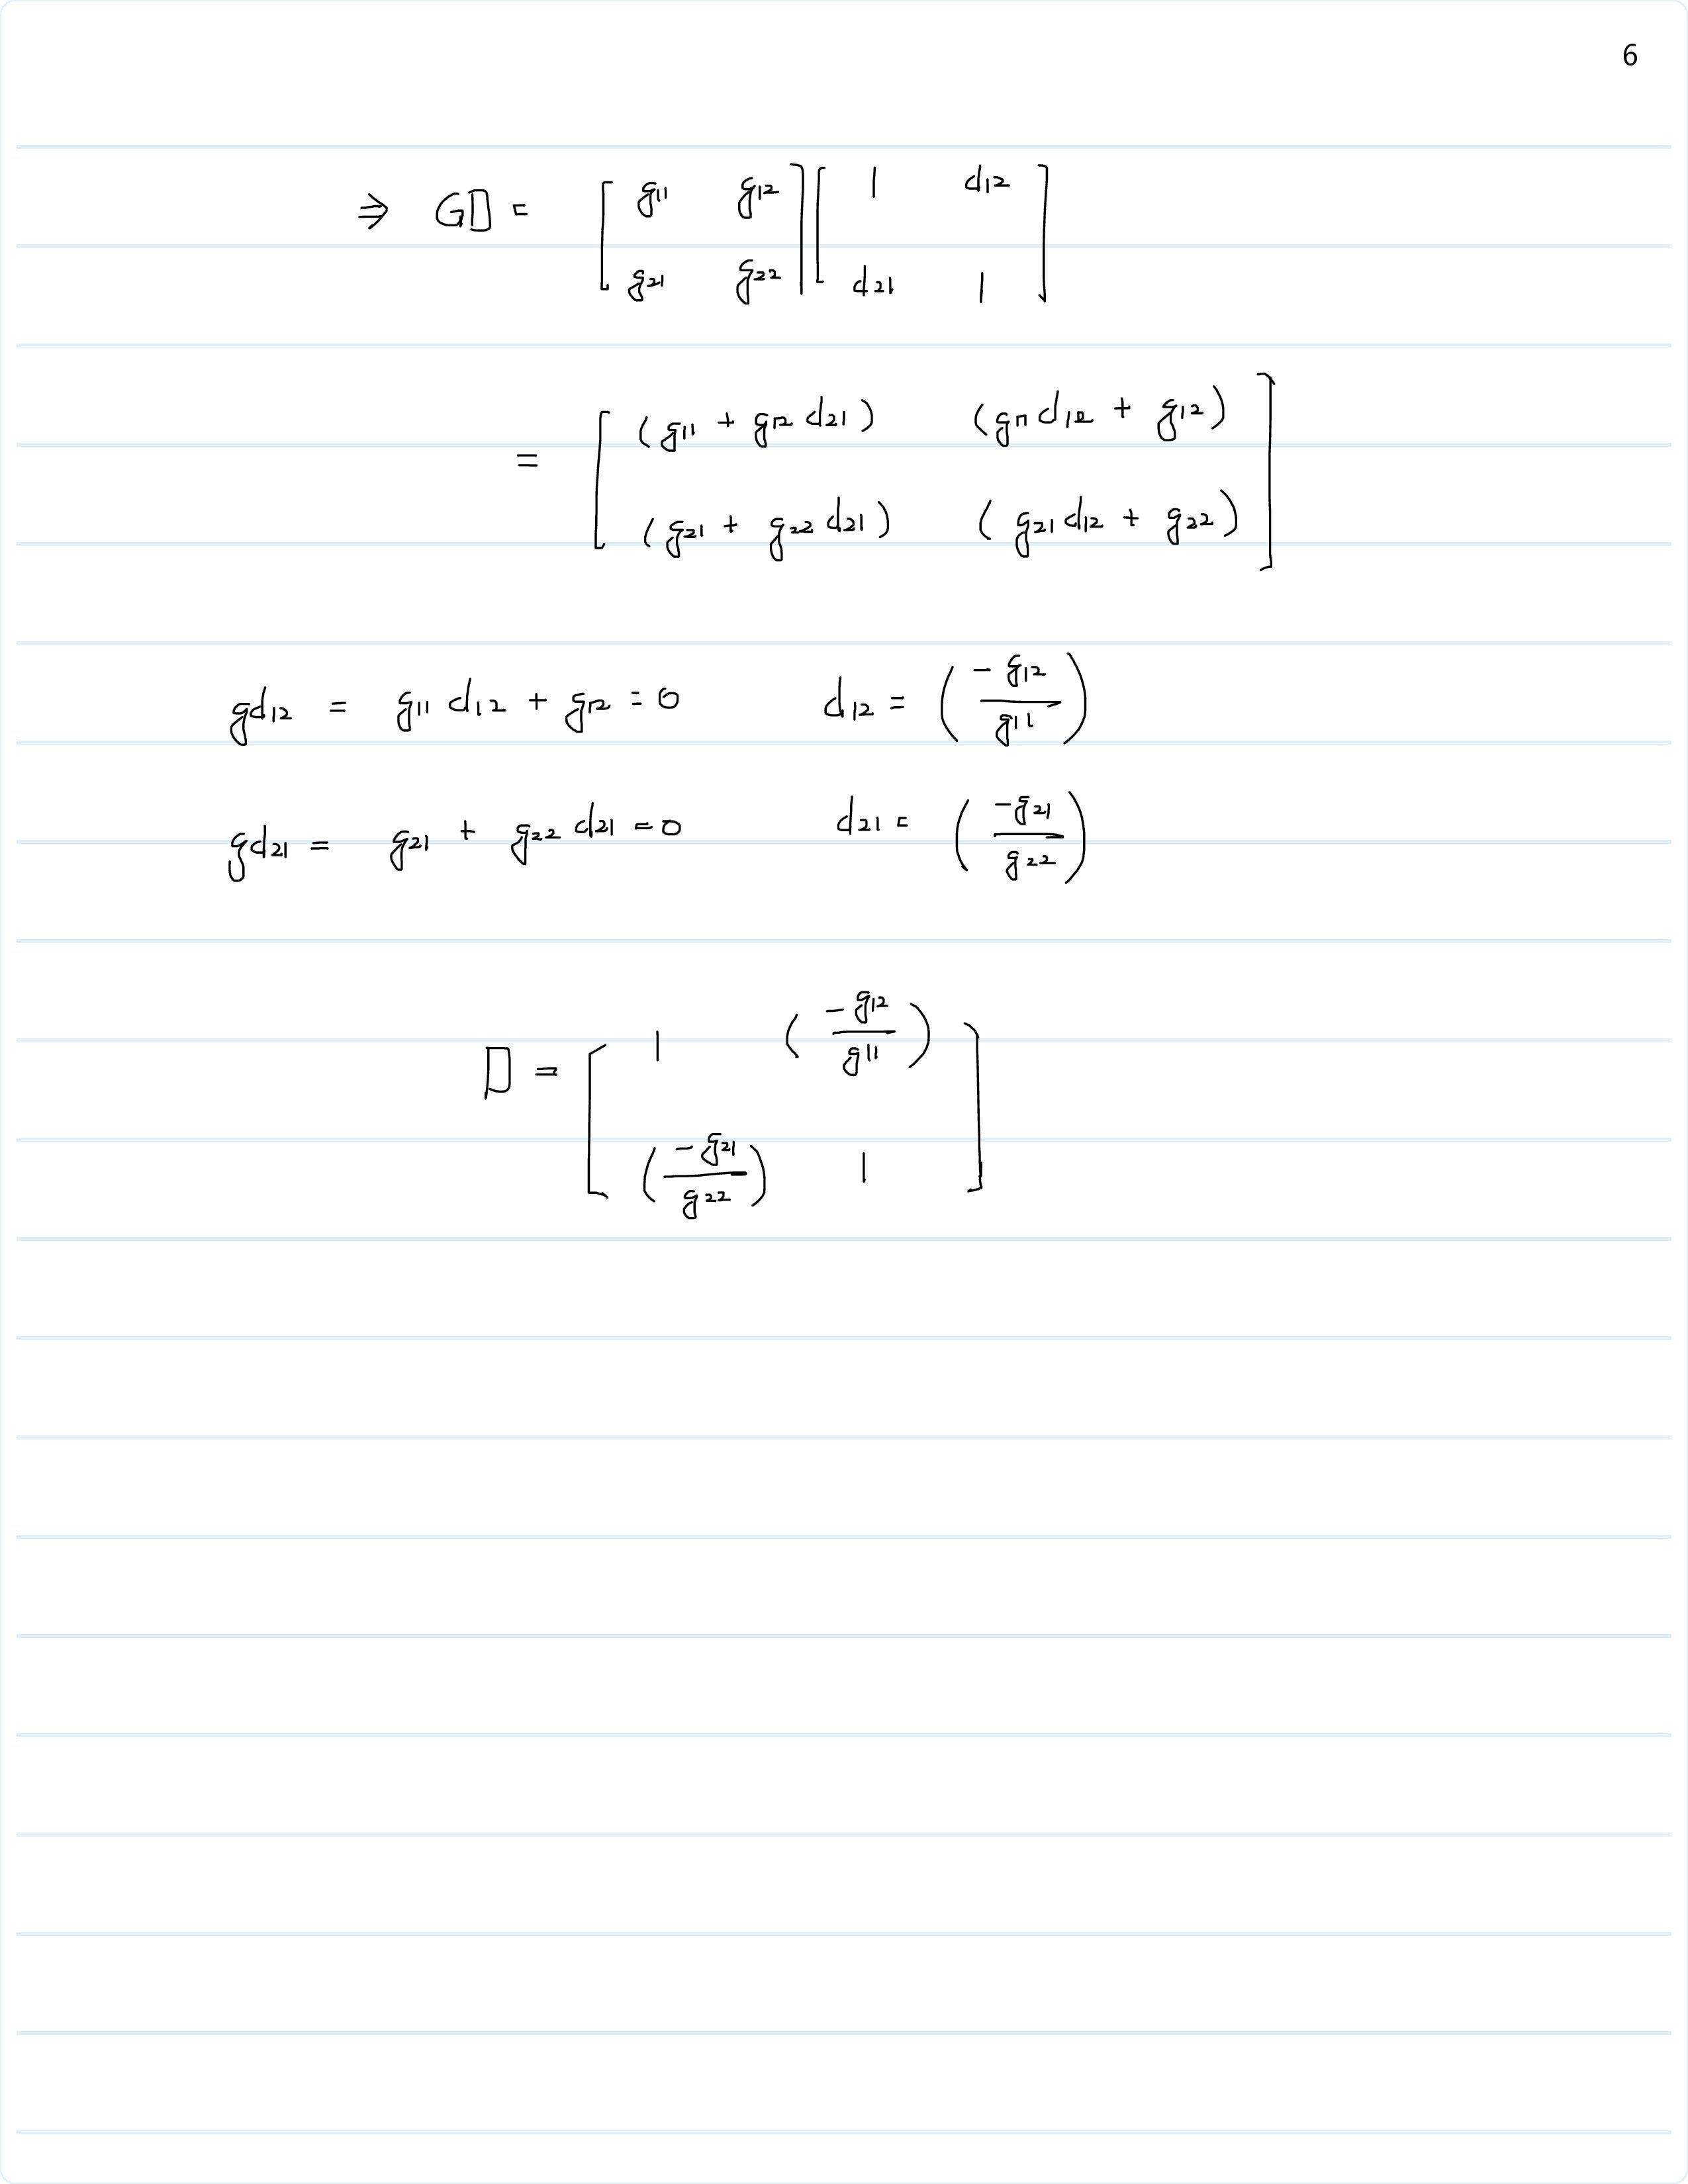 6
⇒ GD = [ g11 g12 ] [ 1 d12 ]
[ g21 g22 ] [ d21 1 ]
= [ (g11 + g12 d21) (g11 d12 + g12) ]
[ (g21 + g22 d21) (g21 d12 + g22) ]
gd12 = g11 d12 + g12 = 0 d12 = ( -g12 / g11 )
gd21 = g21 + g22 d21 = 0 d21 = ( -g21 / g22 )
D = [ 1 ( -g12 / g11 ) ]
[ ( -g21 / g22 ) 1 ]